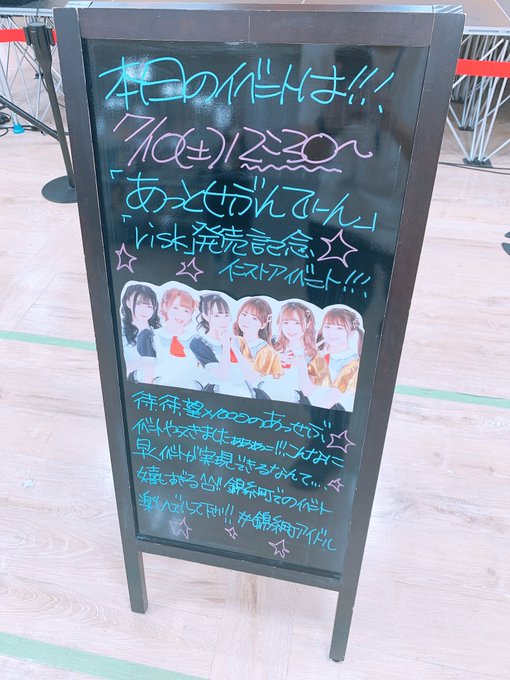 本日のイベントは!!!
7/10(土)12:30〜
「あっとせぶんてぃーん」
「risk」発売記念
インストアイベント!!!
待・待・望×1000のあっせぶ
イベントやってきましたぁぁぁぁー!!!こんなに
早くイベントが実現できるなんて…
嬉しすぎる(泣)!!錦糸町でのイベント
楽しんでいって下さい!!#錦糸町アイドル